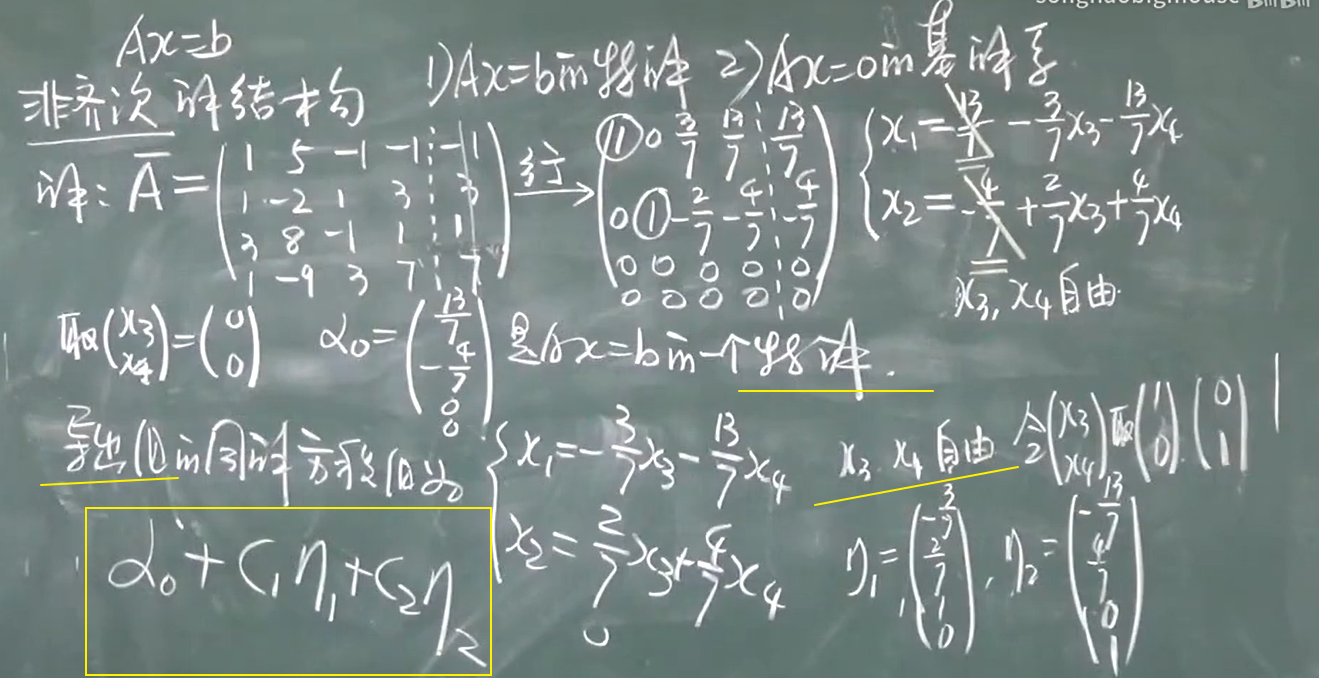 songhaobigmouse
Ax=b
非齐次 解结构 1)Ax=b的特解 2)Ax=0的基解系
解: A̅ = ( 1 5 -1 -1 ⋮ -1
1 -2 1 3 ⋮ 3
3 8 -1 1 ⋮ 1
1 -9 3 7 ⋮ 7 ) 行→ ( 1 0 3/7 13/7 ⋮ 13/7
0 1 -2/7 -4/7 ⋮ -4/7
0 0 0 0 ⋮ 0
0 0 0 0 ⋮ 0 )
{ x₁ = 13/7 - 3/7 x₃ - 13/7 x₄
x₂ = -4/7 + 2/7 x₃ + 4/7 x₄
x₃, x₄ 自由.
取 (x₃ x₄) = (0 0) α₀ = (13/7 -4/7 0 0) 是Ax=b的一个特解.
导出组的同解方程组为 { x₁ = -3/7 x₃ - 13/7 x₄
x₂ = 2/7 x₃ + 4/7 x₄
0
x₃. x₄ 自由 令 (x₃ x₄) 取 (1 0). (0 1)
η₁ = (-3/7 2/7 1 0), η₂ = (-13/7 4/7 0 1)
α₀ + c₁η₁ + c₂η₂